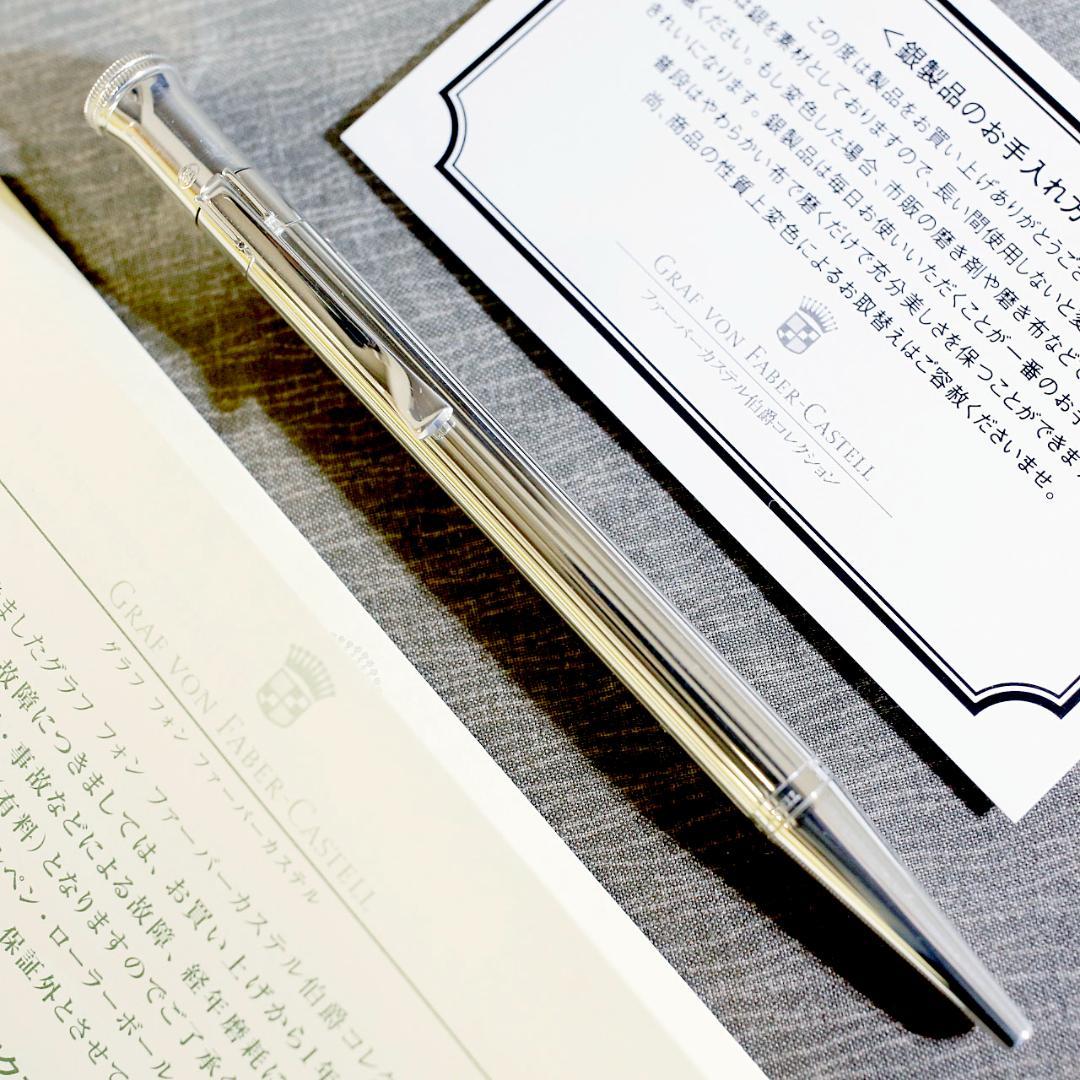 <銀製品のお手入れ方
この度は製品をお買い上げありがとうござ
は銀を素材としておりますので、長い間使用しないと変
意ください。もし変色した場合、市販の磨き剤や磨き布などで
きれいになります。銀製品は毎日お使いいただくことが一番のお手
普段はやわらかい布で磨くだけで充分美しさを保つことができま
尚、商品の性質上変色によるお取替えはご容赦くださいませ。
GRAF VON FABER-CASTELL
ファーバーカステル伯爵コレクション
GRAF VON FABER-CASTELL
グラフ フォン ファーバーカステル
きましたグラフ フォン ファーバーカステル伯爵コレク
故障につきましては、お買い上げから1年
・事故などによる故障、経年磨耗に
(有料)となりますのでご了承
ペン・ローラーボール
保証外とさせて